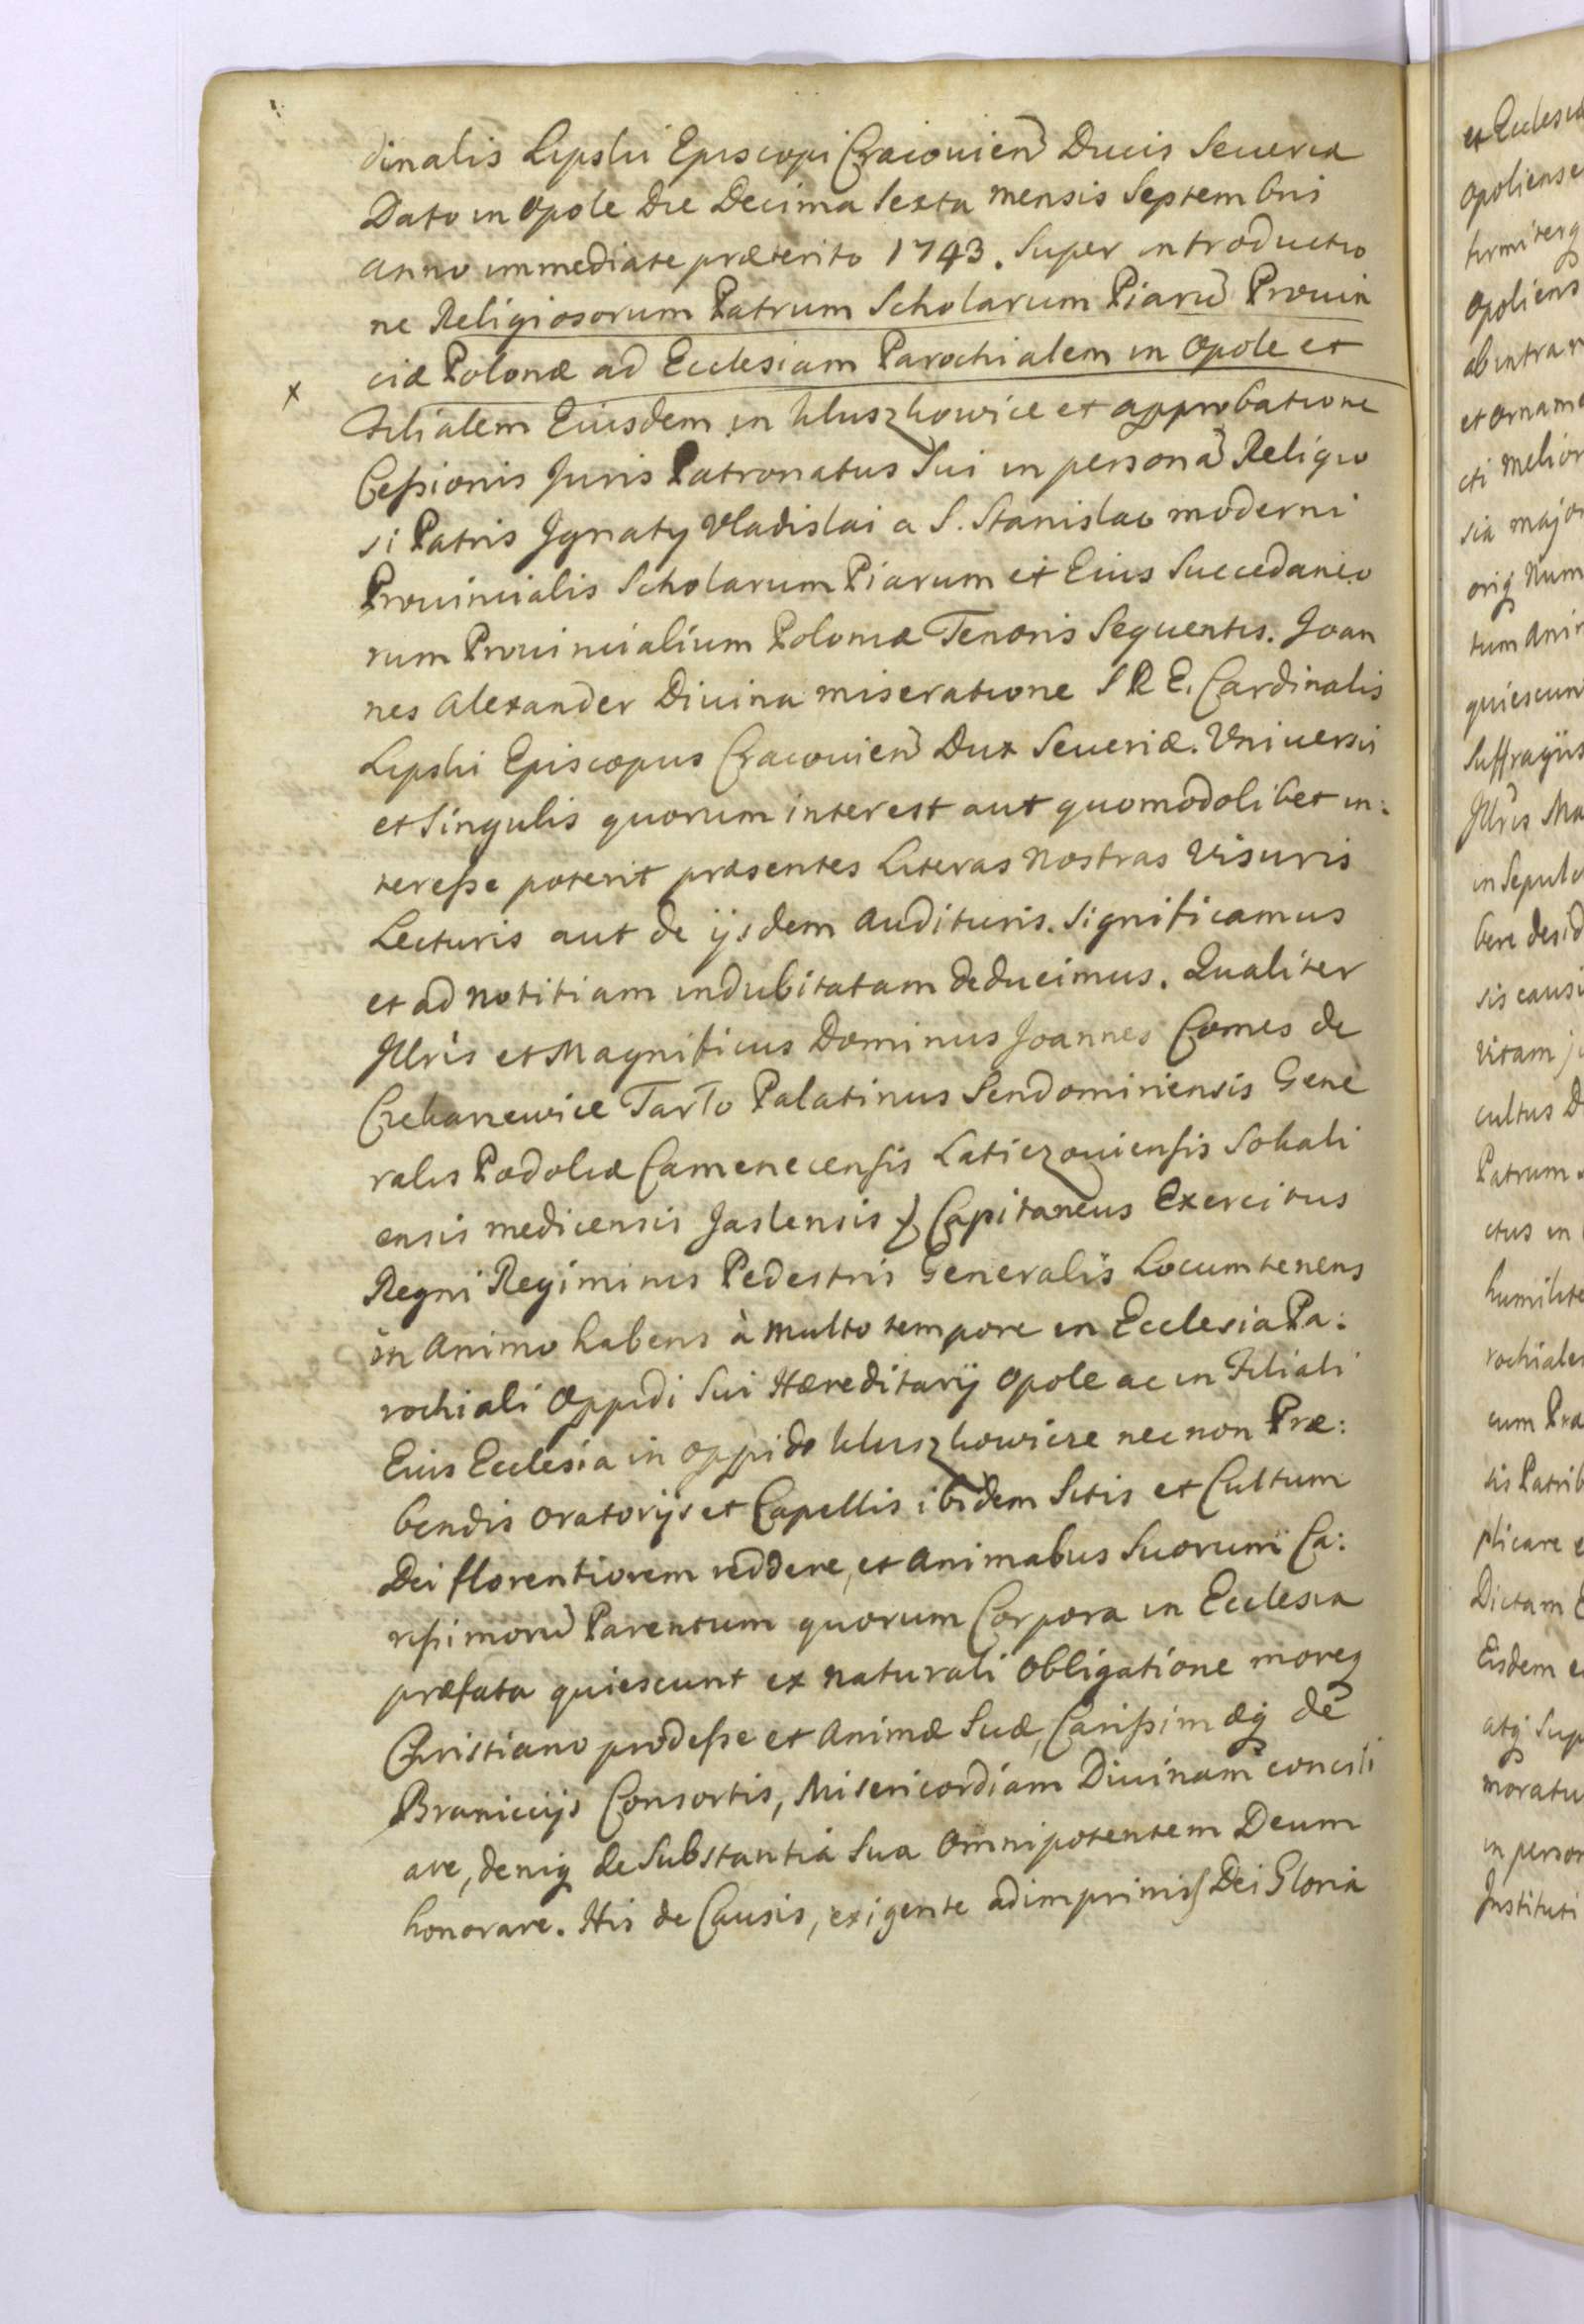 dinalis Lipski Episcopi Cracovien Ducis Severiæ
Dato in Opole Die Decima Sexta mensis Septembris
anno immediate præterito 1743. Super introductio
ne Religiosorum Patrum Scholarum Piarū Provin
ciæ Polonæ ad Ecclesiam Parochialem in Opole et
x
Filialem Eiusdem in Kluszkowice et approbatione
Ceßionis Juris Patronatus Sui in personā Religio
si Patris Ignatij Vladislai a S. Stanislao moderni
Provincialis Scholarum Piarum et Eius Succedaneo
rum Provincialium Poloniæ Tenoris Sequentis. Joan
nes Alexander Divina miseratione S R E. Cardinalis
Lipski Episcopus Cracovien Dux Severiæ. Universis
et Singulis quorum interest aut quomodolibet in:
tereße poterit præsentes Literas Nostras Visuris
Lecturis aut de ijsdem Audituris. Significamus
et ad Notitiam indubitatam deducimus. Qualiter
Jllris et Magnificus Dominus Joannes Comes de
Czekarzewice Tarło Palatinus Sendomiriensis Gene
ralis Podoliæ Camenecensis Laticzoviensis Sokali
ensis medicensis Jaslensis Capitaneus Exercitus
Regni Regiminis Pedestris Generalis Locumtenens
in Animo habens à multo tempore in Ecclesia Pa:
rochiali Oppidi Sui Hæreditarij Opole ac in Filiali
Eius Ecclesia in Oppido Kluszkowicze necnon Præ:
bendis Oratorijs et Capellis ibidem Sitis et Cultum
Dei florentiorem reddere, et Animabus Suorum Ca:
rißimorū Parentum quorum Corpora in Ecclesia
præfata quiescunt ex Naturali Obligatione moreq
Christiano prodeße et Animæ Suæ, Carißimæq de
Braniccijs Consortis, Misericordiam Divinam concili
are, deniq de Substantia Sua Omnipotentem Deum
honorare. His de Causis, exigente adimprimis Dei Gloria
et Ecclesia
Opoliense
Opoliens
ab intra
et Orname
cti melior
sia major
oriq Num
tum Anim
quiescun
Suffragiis
Jllris Ma
in Sepulc
bere desid
sis causi
vitam
cultus D
Patrum
ctus in
humilite
rochiales
cum Præ
sis Patrib
plicare e
Dictam E
Eisdem e
atq Sup
moratu
in person
Instituti